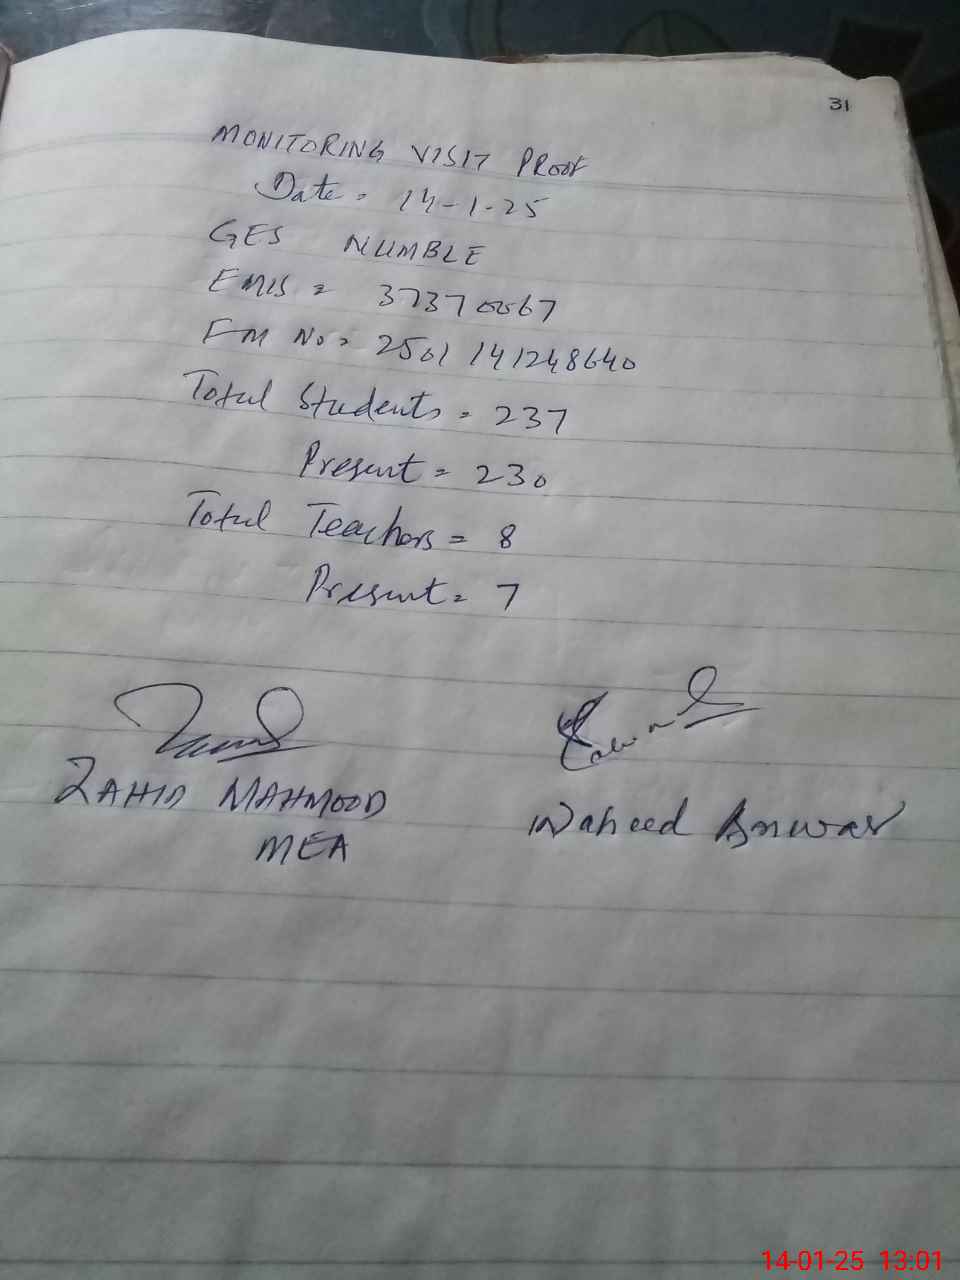 31
MONITORING VISIT PROOF
Date = 14-1-25
GES NUMBLE
EMIS = 37370067
FM No = 2501141248640
Total Students = 237
Present = 230
Total Teachers = 8
Present = 7
ZAHID MAHMOOD
MEA
Waheed Anwar
14-01-25 13:01